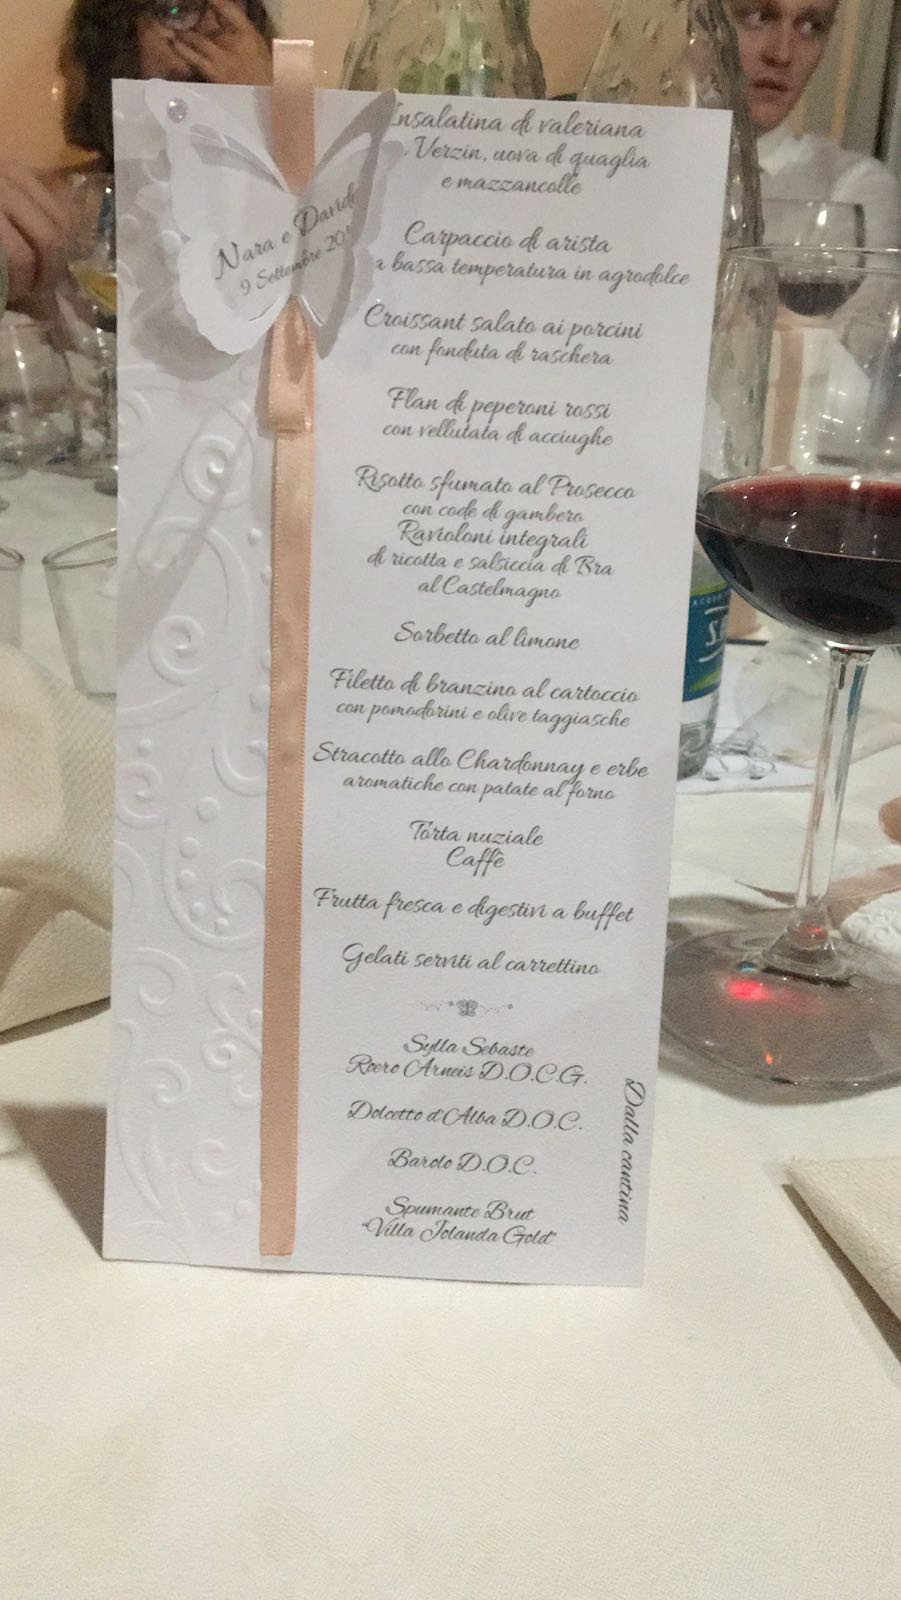 Nara e Davide
9 Settembre
Insalatina di valeriana
Verzin, uova di quaglia
e mazzancolle
Carpaccio di arista
a bassa temperatura in agrodolce
Croissant salato ai porcini
con fonduta di raschera
Flan di peperoni rossi
con vellutata di acciughe
Risotto sfumato al Prosecco
con code di gambero
Ravioloni integrali
di ricotta e salsiccia di Bra
al Castelmagno
Sorbetto al limone
Filetto di branzino al cartoccio
con pomodorini e olive taggiasche
Stracotto allo Chardonnay e erbe
aromatiche con patate al forno
Torta nuziale
Caffè
Frutta fresca e digestivi a buffet
Gelati serviti al carrettino
Sylla Sebaste
Roero Arneis D.O.C.G.
Dolcetto d'Alba D.O.C.
Barolo D.O.C.
Spumante Brut
"Villa Jolanda Gold"
Dalla cantina